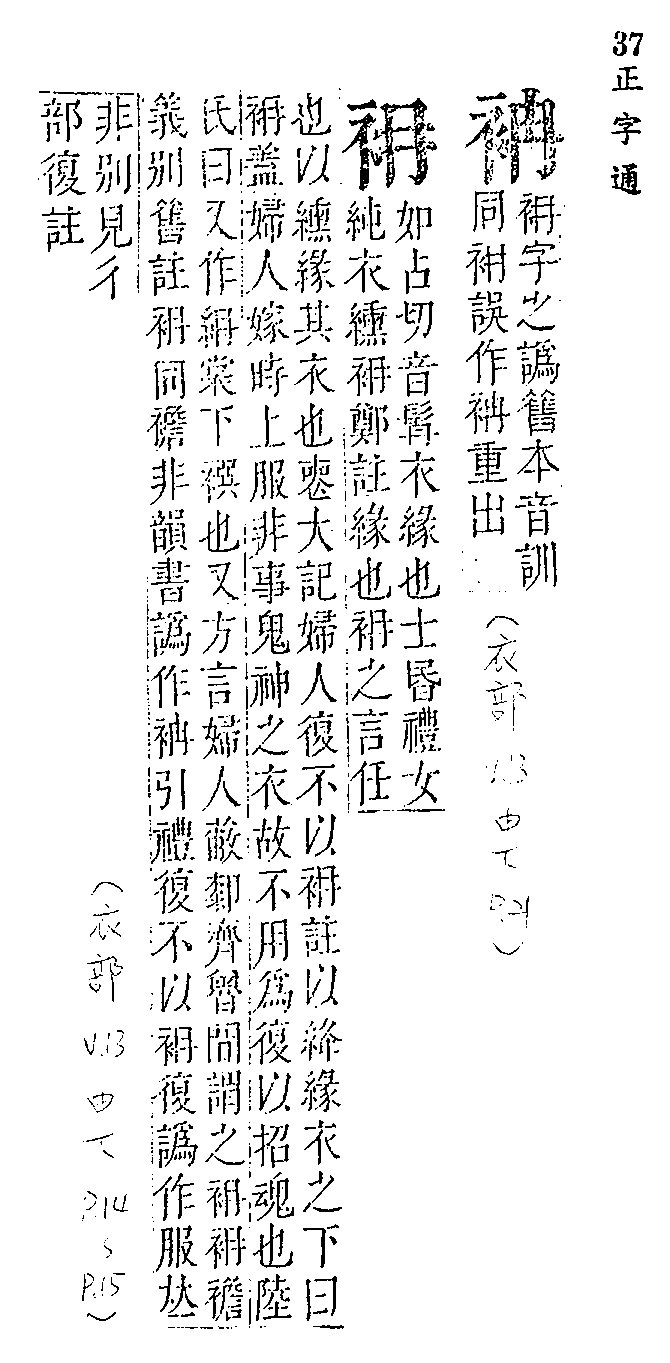 37 正字通
袡字之譌舊本音訓
同袡誤作重出
（衣部
袡
如占切音髥衣緣也士昏禮女
純衣纁袡鄭註緣也袡之言任
也以纁緣其衣也喪大記婦人復不以袡註以絳緣衣之下曰
袡蓋婦人嫁時上服非事鬼神之衣故不用爲復以招魂也陸
氏曰又作裳下襈也又方言婦人蔽厀齊魯間謂之袡袡襜
義別舊註袡同襜非韻書譌作引禮復不以袡復譌作服𠀤
非別見彳
部復註
（衣部 V.13 P.14 P.15）